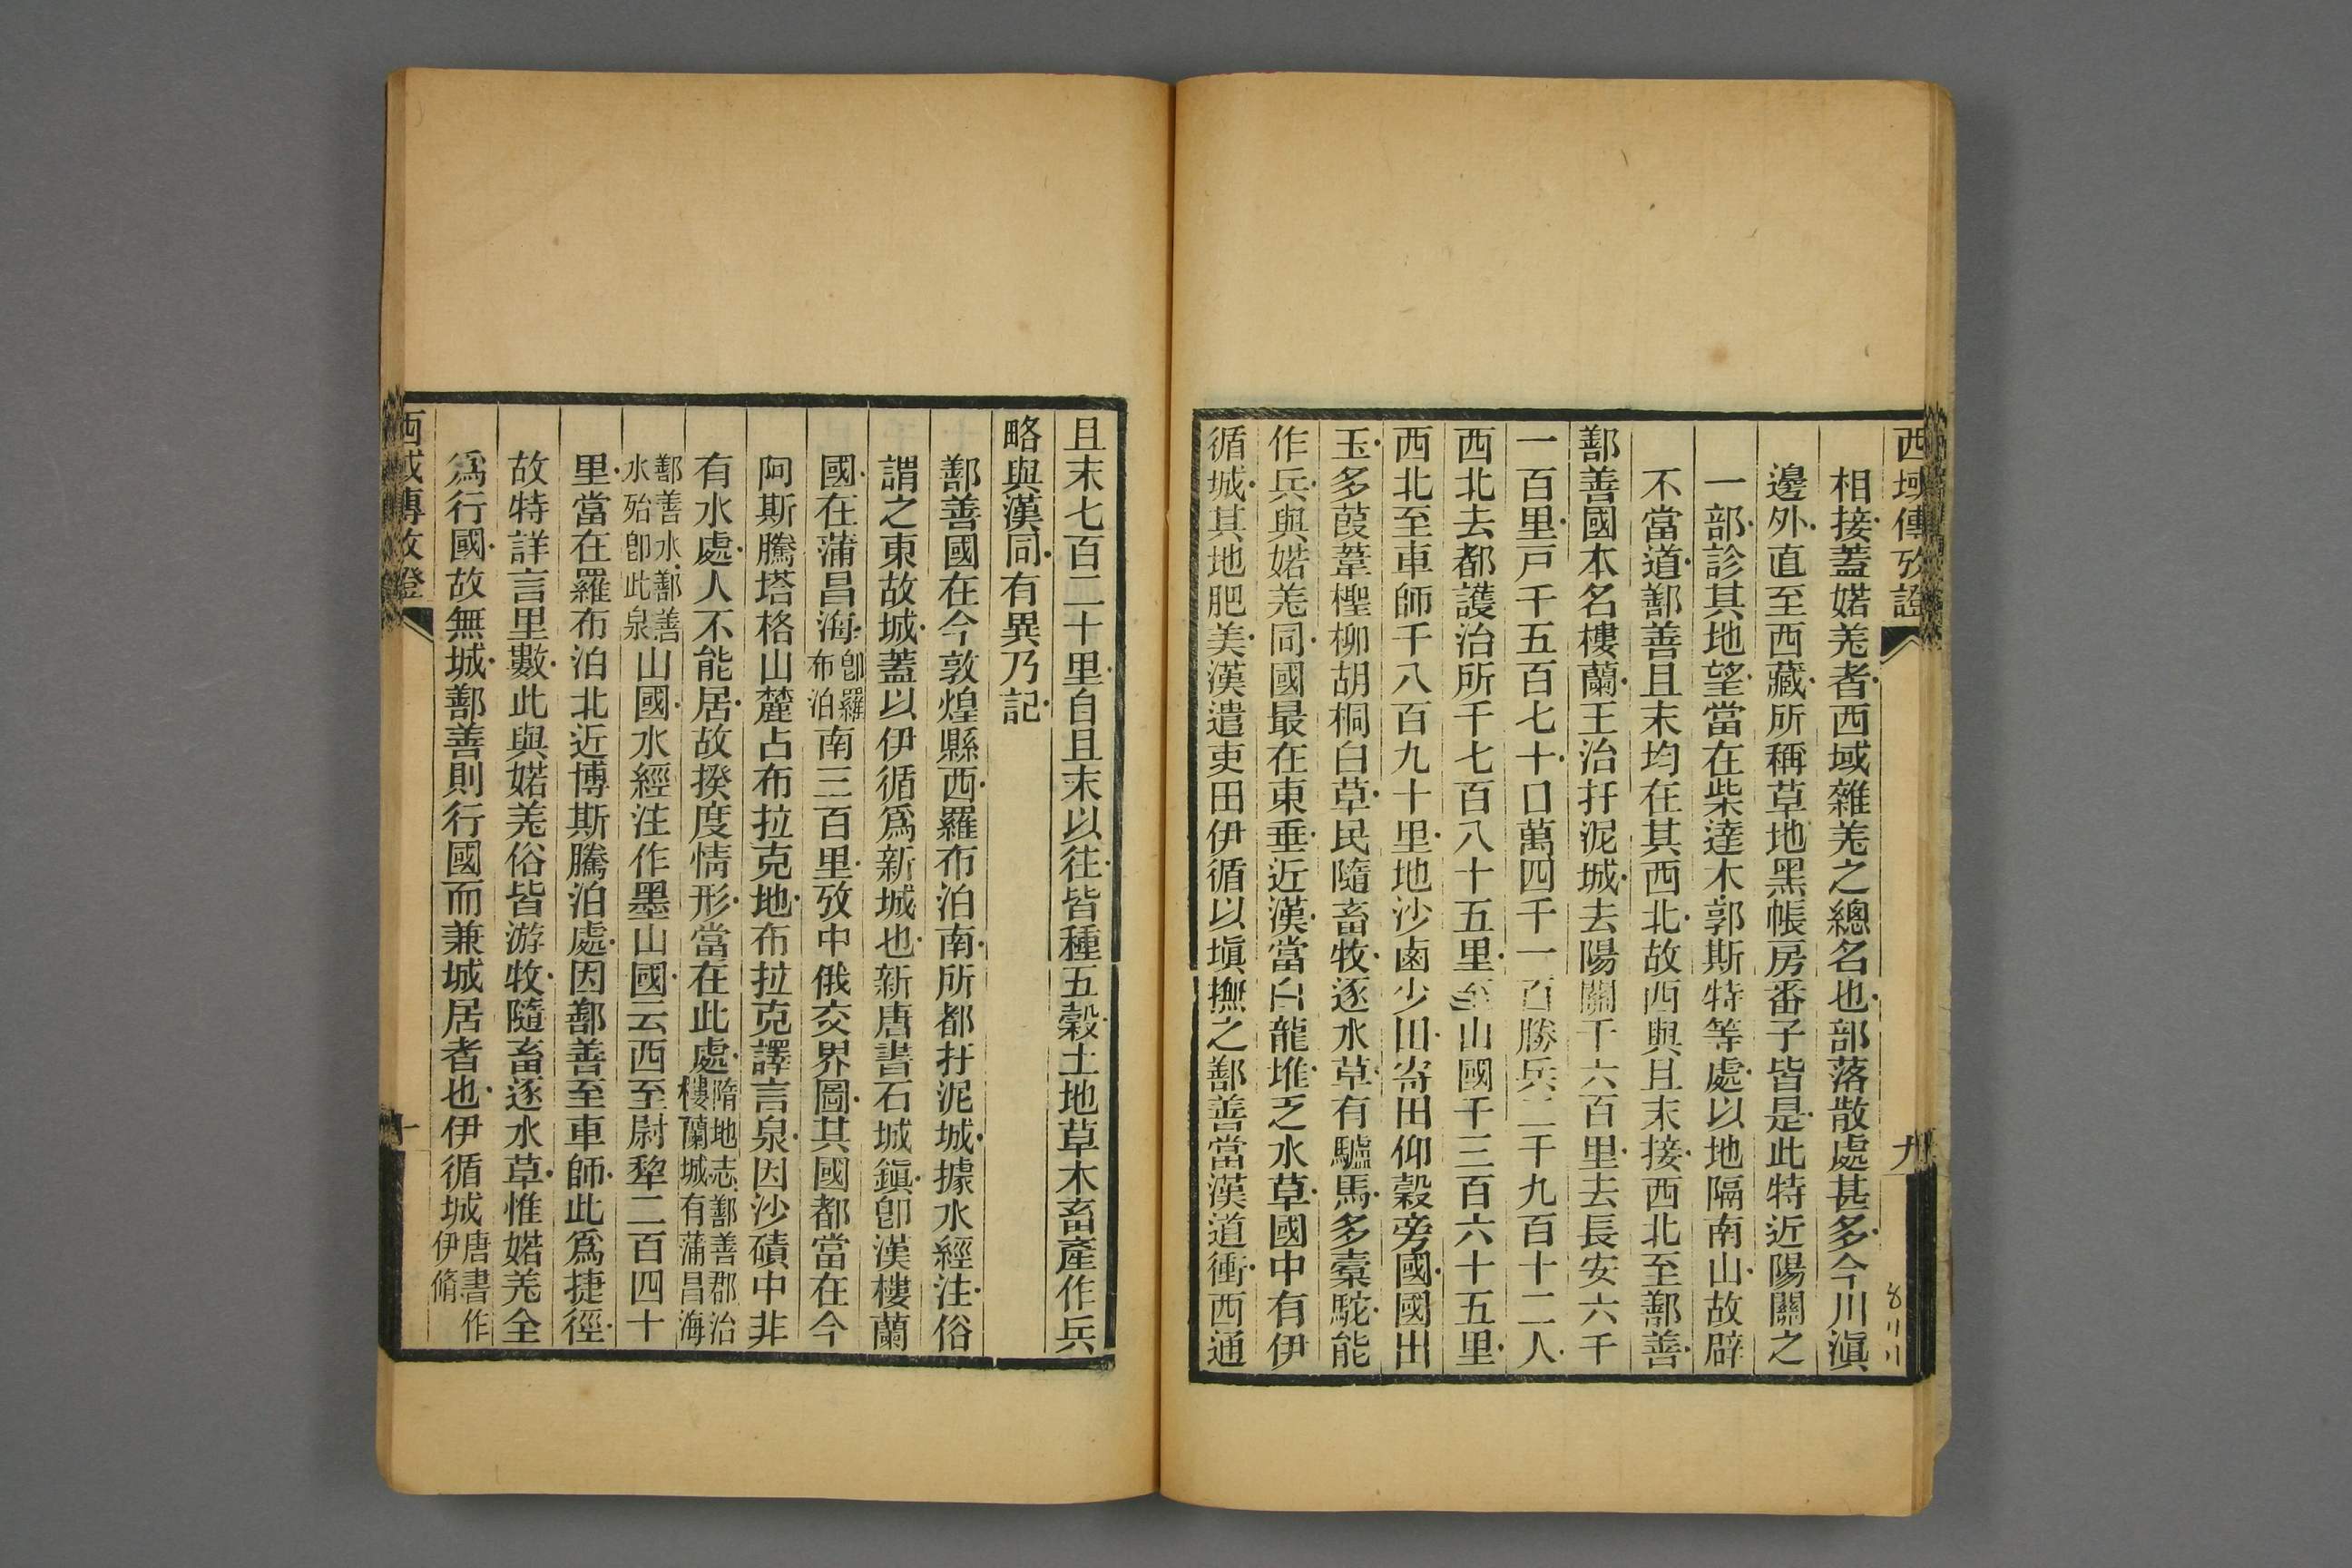 西域傳攷證
九
相接蓋婼羌者西域雜羌之總名也部落散處甚多今川滇
邊外直至西藏所稱草地黑帳房番子皆是此特近陽關之
一部診其地望當在柴達木郭斯特等處以地隔南山故辟
不當道鄯善且末均在其西北故西與且末接西北至鄯善
鄯善國本名樓蘭王治扜泥城去陽關千六百里去長安六千
一百里戸千五百七十口萬四千一百勝兵二千九百十二人
西北去都護治所千七百八十五里至山國千三百六十五里
西北至車師千八百九十里地沙鹵少田寄田仰穀旁國國出
玉多葭葦檉柳胡桐白草民隨畜牧逐水草有驢馬多橐駝能
作兵與婼羌同國最在東垂近漢當白龍堆乏水草國中有伊
循城其地肥美漢遣吏田伊循以塡撫之鄯善當漢道衝西通
且末七百二十里自且末以往皆種五穀土地草木畜產作兵
略與漢同有異乃記
鄯善國在今敦煌縣西羅布泊南所都扜泥城據水經注俗
謂之東故城蓋以伊循爲新城也新唐書石城鎭卽漢樓蘭
國在蒲昌海卽羅布泊南三百里攷中俄交界圖其國都當在今
阿斯騰塔格山麓占布拉克地布拉克譯言泉因沙磧中非
有水處人不能居故揆度情形當在此處隋地志鄯善郡治樓蘭城有蒲昌海
鄯善水鄯善水殆卽此泉山國水經注作墨山國云西至尉犂二百四十
里當在羅布泊北近博斯騰泊處因鄯善至車師此爲捷徑
故特詳言里數此與婼羌俗皆游牧隨畜逐水草惟婼羌全
爲行國故無城鄯善則行國而兼城居者也伊循城唐書作伊脩
西域傳攷證
十